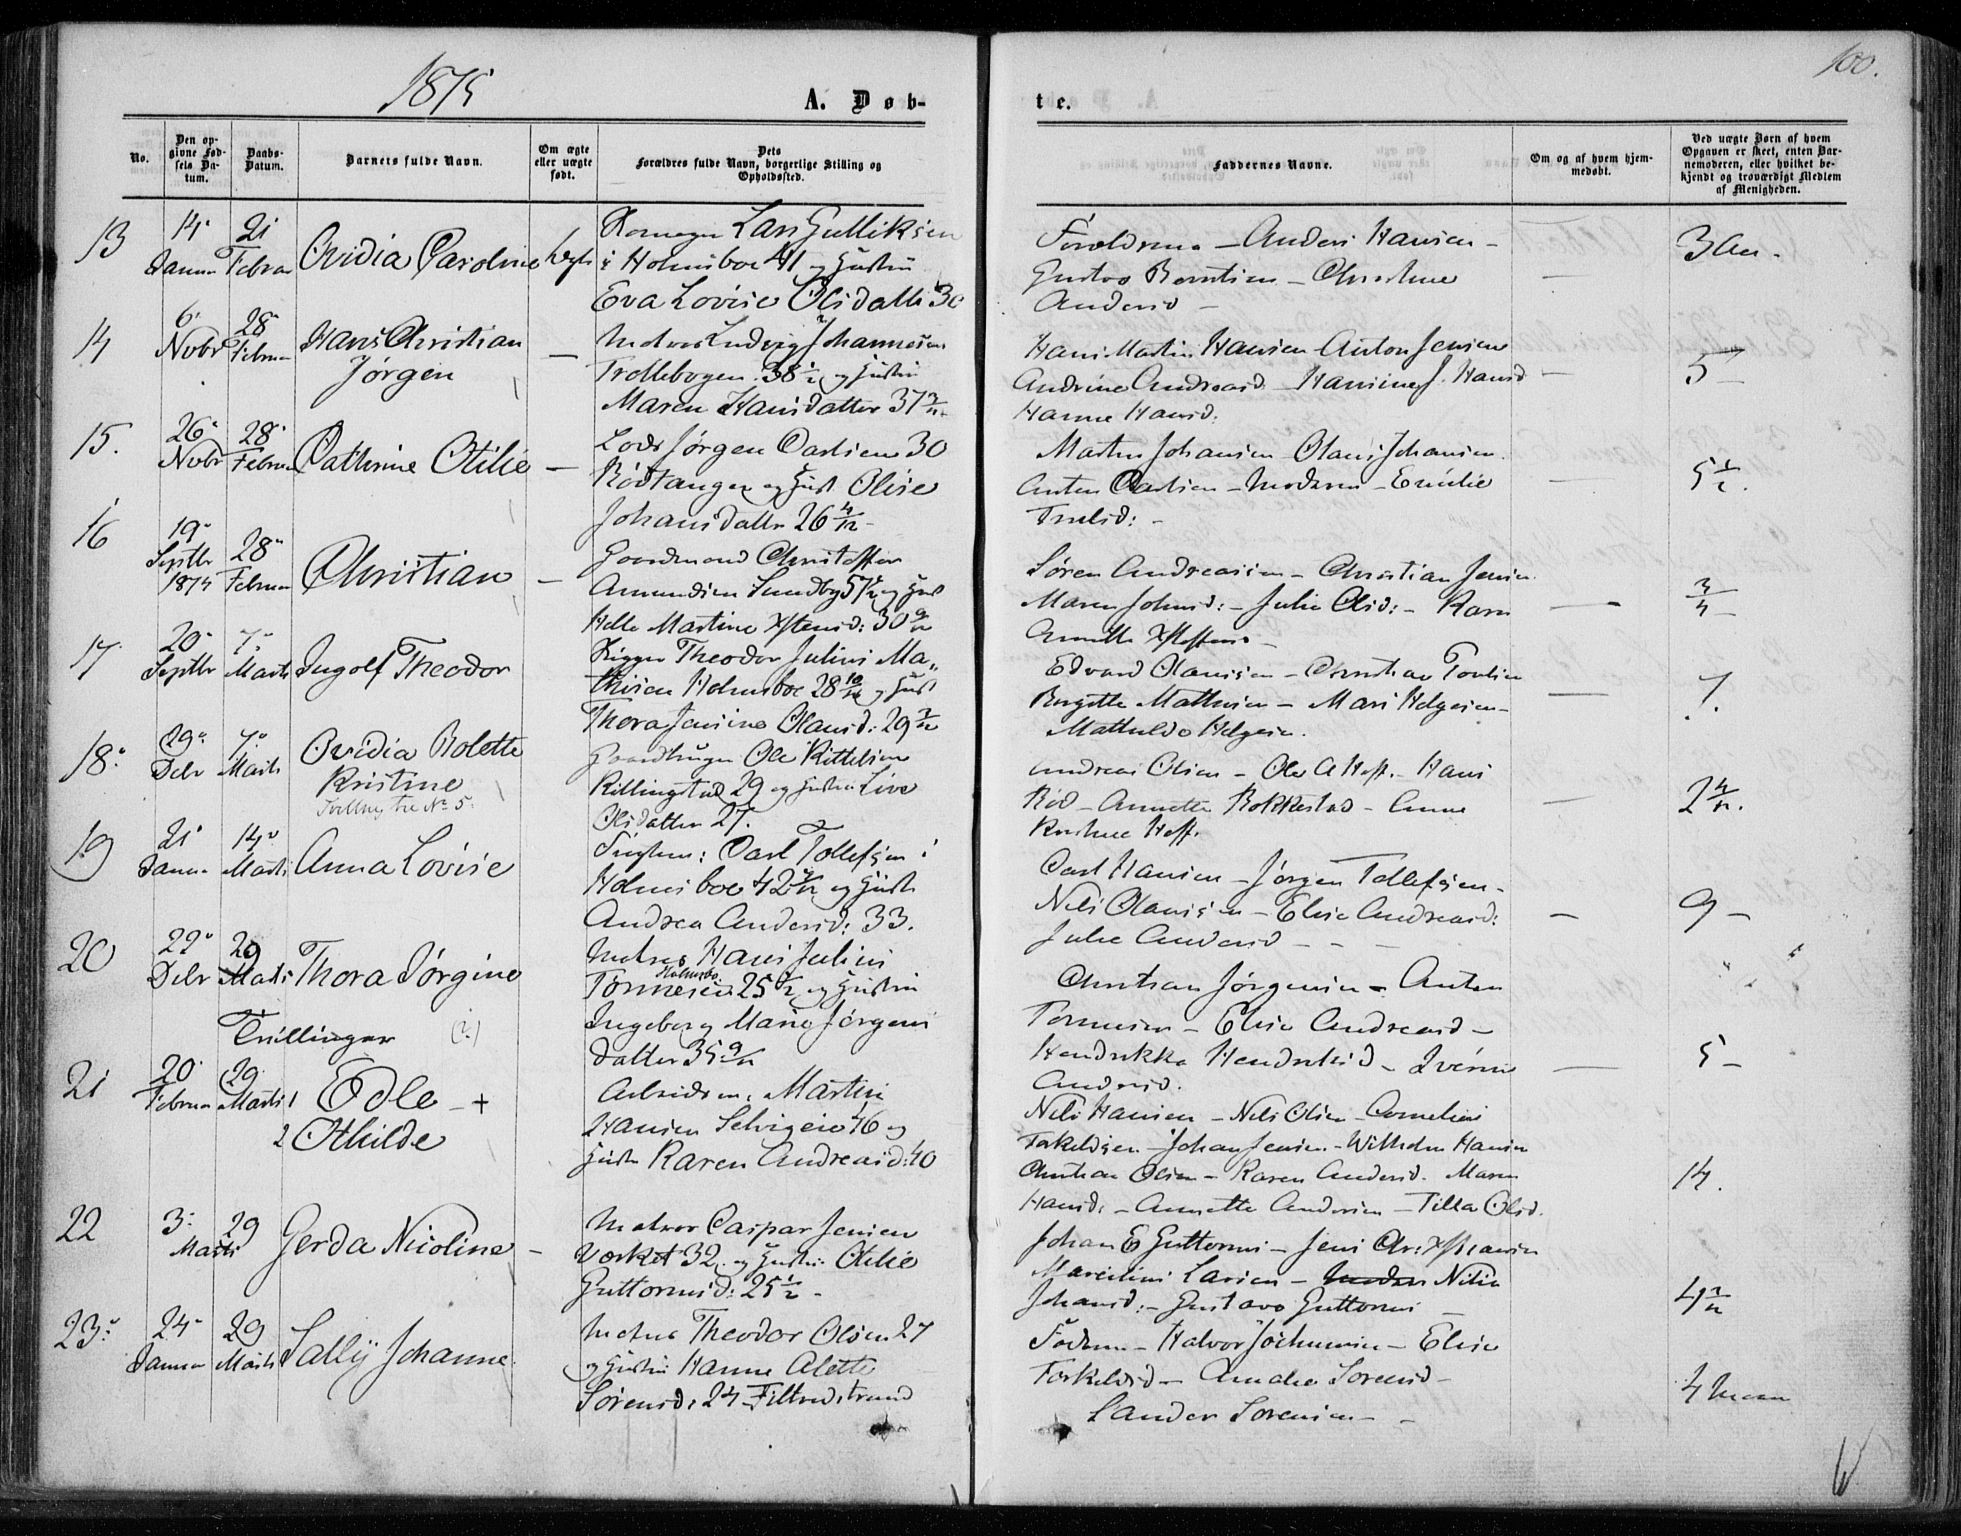 1875
A. Døb-
te.
100.
No.
Den op-
givne Fød-
sels Da-
tum.
Daabs-
Datum.
Barnets fulde Navn.
Om ægte
eller uægte
født.
Dets
Forældres fulde Navn, borgerlige Stilling og
Opholdssted.
Faddernes Navne.
Om og af hvem hjem-
medøbt.
Ved uægte Børn af hvem
Opgaven er skeet, enten Bar-
nemoderen, eller hvilket be-
kjendt og troværdigt Medlem
af Menigheden.
13
14
Januar
21
Februar
Ovidia Caroline
Lars Gulliksen
i Holmsboe 41 og Hustru
Eva Lovise Olsdatter 30
Forældrene - Anders Hansen -
Gustav Berntsen - Christine
Andersd -
14
6
Novbr
28
Februar
Hans Christian
Jørgen
Matros Ludvig Johannesen
Trollebogen 38 1/2 og Hustru
Maren Hansdatter 37
Hans Martin Hansen Anton Jensen
Andrine Andreasd. Hansine J. Hansd
Hanne Hansd.
5 -
15.
26
Novbr
28
Februar
Cathrine Otilie -
Lods Jørgen Carlsen 30
Rødtangen og Hust. Olise
Johansdatter 26 4/12
Martin Johansen Olaus Johansen.
Anton Carlsen - Moderen - Emilie
Truelsd: -
5 1/2.
16
19
Septbr
1874
28
Februar
Christian -
Gaardmand Christoffer
Amundsen Sundby og Hust
Helle Martine
Søren Andreassen - Christian Jensen
Maren Johnsd: - Julie Olsd: - Karen
3/4 -
17
20
Septbr
7
Marts
Ingolf Theodor
Rigger Theodor Julius Ma-
thisen Holmsboe 28 10/12 og Hust
Thora Jensine Olausd: 29
Edvard Olaussen - Christian Poulsen
Birgitte Mathisen - Mari Helgesen -
Mathilde Helgesen.
7.
18
29
Debr
7
Marts
Ovidia Bolette
Kristine
Tvilling til No 5.
Gaardbruger Ole Kittelsen
Killingstad 29 og Hustru Live
Olsdatter 27.
Andreas Olsen - Ole A Hoff. - Hans
Rød - Annette Rokkestad - Anne
Kristine Hoff.
2 4/12.
19
21
Januar
14
Marts
Anna Lovise
Carl Tollefsen i
Holmsboe 42 og Hustr
Andrea Andersd: 33.
Carl Hansen - Jørgen Tollefsen -
Nils Olaussen - Elise Andreasd:
Julie Andersd -
9 -
20
22
Debr
29
Marts
Thora Jørgine
Matros Hans Julius
Holmsbo
Tønnesen 25 1/2 og Hustru
Ingeborg Marie Jørgens
datter 35 9/12
Christian Jørgensen - Anton
Tønnesen - Elise Andreasd -
Hendrikke Hendriksd -
Andersd.
5 -
Tvillinger
21
20
Februar
29
Marts
1 Edle - +
2 Othilde
Arbeidsm: Martin
Hansen Selvigeie 46 og
Hustr Karen Andreasd: 40
Nils Hansen - Nils Olsen - Cornelius
Torkeldsen - Johan Jensen - Wilhelm Hansen
Christian Olsen - Karen Andersd. Maren
Hansd: - Annette Andersen - Tilla Olsd.
14.
22
3
Marts
29
Gerda Nicoline -
Matros Caspar Jensen
Værket 32. og Hustru Otilie
Guttormsd: 25 1/2 -
Johan E Guttorms - Jens Chr:
Larsen - Nilia
Johansd: - Gustava Guttorms -
23
24
Januar
29
Marts
Sally Johanne
Matros Theodor Olsen 27
og Hustru Hanne Alette
Sørensd: 24 Filtvedstrand
Faderen - Halvor Jochumsen - Elise
Torkeldsd - Amalie Sørensd -
Sander Sørensen -
4